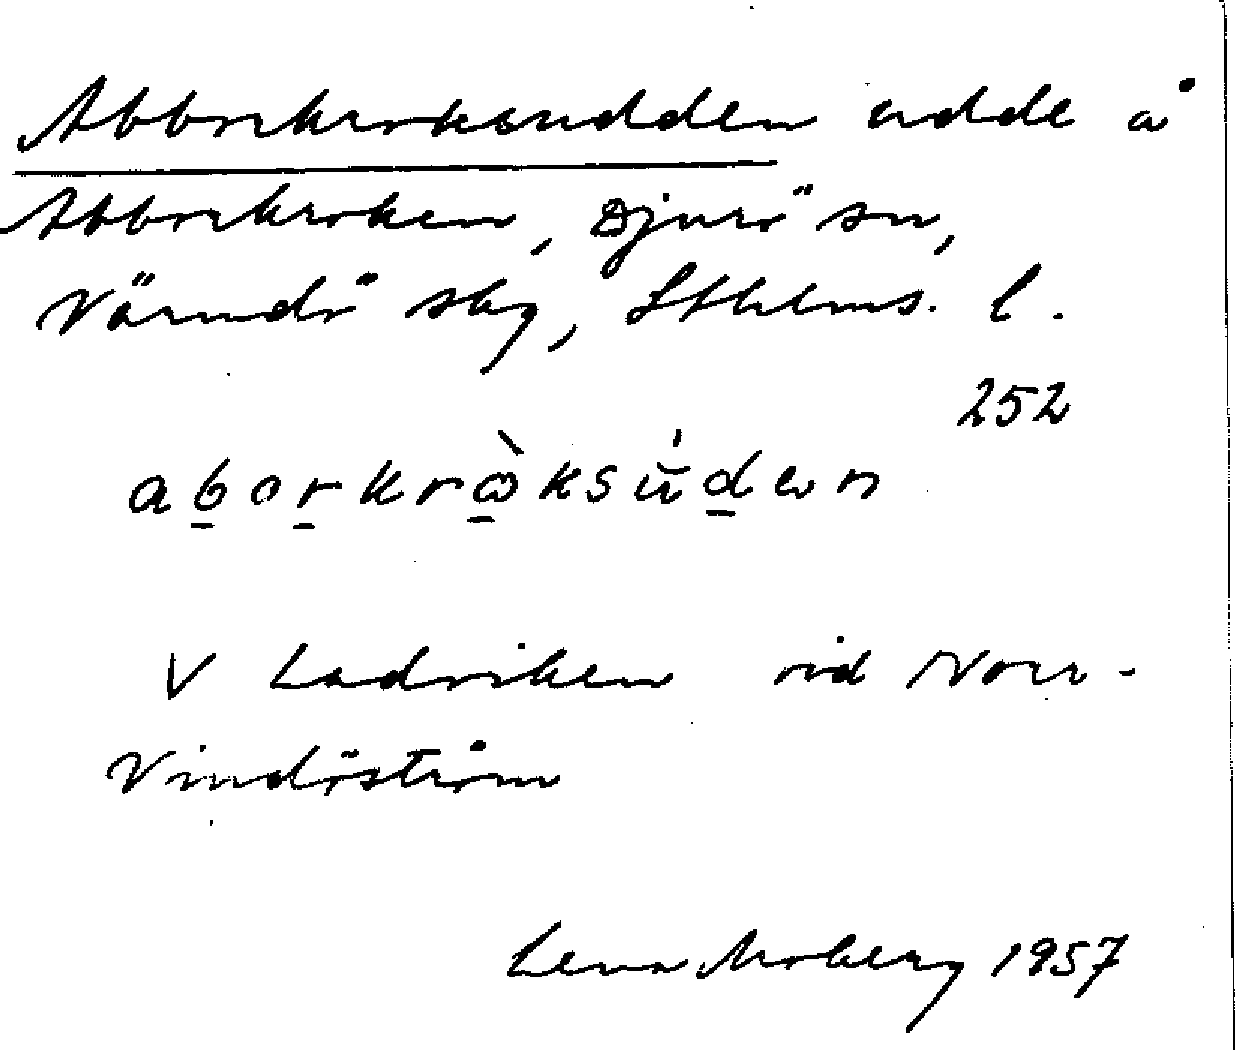 Abborrkroksudden udde å
Abborrkroken, Djurö sn,
Värmdö skg, Sthlms. l.
252
aborkrɷ̀ksúdən
V Ladviken vid Norr-
Vindöström
Lena Moberg 1957